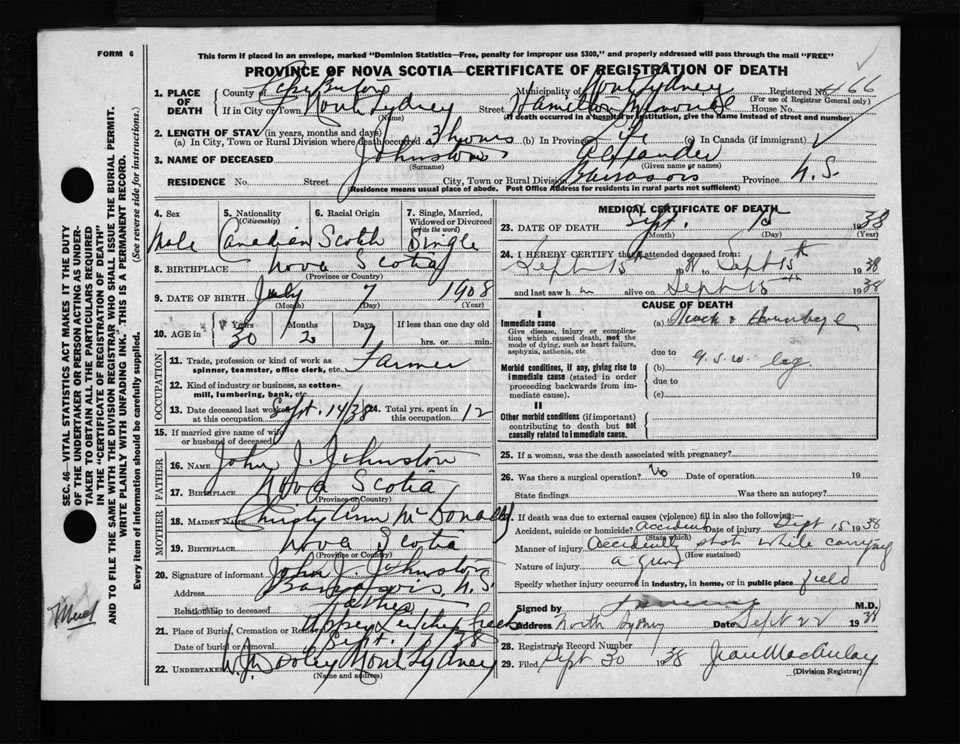 FORM 6
This form if placed in an envelope, marked "Dominion Statistics—Free, penalty for improper use $300," and properly addressed will pass through the mail "FREE"
PROVINCE OF NOVA SCOTIA—CERTIFICATE OF REGISTRATION OF DEATH
1. PLACE OF DEATH
County of Cape Breton Municipality of North Sydney Registered No. 466
(For use of Registrar General only)
If in City or Town North Sydney Street Hamilton Memorial House No.
(Name) (If death occurred in a hospital or institution, give the name instead of street and number)
2. LENGTH OF STAY (in years, months and days)
(a) In City, Town or Rural Division where death occurred 3 hours (b) In Province Life (c) In Canada (if immigrant)
3. NAME OF DECEASED Johnston Alexander
(Surname) (Given name or names)
RESIDENCE No. Street City, Town or Rural Division Province N.S.
(Residence means usual place of abode. Post Office Address for residents in rural parts not sufficient)
SEC. 46—VITAL STATISTICS ACT MAKES IT THE DUTY
OF THE UNDERTAKER OR PERSON ACTING AS UNDERTAKER TO OBTAIN ALL THE PARTICULARS REQUIRED
IN THE "CERTIFICATE OF REGISTRATION OF DEATH"
AND TO FILE THE SAME WITH THE DIVISION REGISTRAR WHO SHALL ISSUE THE BURIAL PERMIT.
WRITE PLAINLY WITH UNFADING INK. THIS IS A PERMANENT RECORD.
Every item of information should be carefully supplied. (See reverse side for instructions.)
4. Sex Male
5. Nationality (Citizenship) Canadian
6. Racial Origin Scotch
7. Single, Married, Widowed or Divorced (write the word) Single
8. BIRTHPLACE Nova Scotia
(Province or Country)
9. DATE OF BIRTH July 7 1908
(Month) (Day) (Year)
10. AGE in Years Months Days If less than one day old
30 2 7 hrs. or min.
OCCUPATION
11. Trade, profession or kind of work as spinner, teamster, office clerk, etc. Farmer
12. Kind of industry or business, as cotton-mill, lumbering, bank, etc.
13. Date deceased last worked at this occupation Sept. 14/38 14. Total yrs. spent in this occupation 12
15. If married give name of wife or husband of deceased
FATHER
16. NAME John J. Johnston
17. BIRTHPLACE Nova Scotia
(Province or Country)
MOTHER
18. MAIDEN NAME Christy Ann McDonald
19. BIRTHPLACE Nova Scotia
(Province or Country)
20. Signature of informant John J. Johnston
Address N.S.
Relationship to deceased Father
21. Place of Burial, Cremation or Removal Upper Leitches Creek
Date of burial or removal Sept. 17/38
22. Undertaker W. J. Dooley North Sydney
(Name and address)
MEDICAL CERTIFICATE OF DEATH
23. DATE OF DEATH Sept. 15 1938
(Month) (Day) (Year)
24. I HEREBY CERTIFY that I attended deceased from:
Sept 15th 1938 to Sept 15th 1938
and last saw h im alive on Sept 15 1938
CAUSE OF DEATH
I
Immediate cause
Give disease, injury or complication which caused death, not the mode of dying, such as heart failure, asphyxia, asthenia, etc
(a) Shock & Hemorrhage
due to
Morbid conditions, if any, giving rise to immediate cause (stated in order proceeding backwards from immediate cause).
(b) G.S.W. leg
due to
(c)
II
Other morbid conditions (if important) contributing to death but not causally related to immediate cause.
25. If a woman, was the death associated with pregnancy?
26. Was there a surgical operation? No Date of operation 19
State findings Was there an autopsy?
27. If death was due to external causes (violence) fill in also the following:
Accident, suicide or homicide? Accident Date of injury Sept 15 1938
(State which)
Manner of injury Accidently shot while carrying
(How sustained)
Nature of injury a gun
Specify whether injury occurred in industry, in home, or in public place field
Signed by M.D.
Address North Sydney Date Sept 22 1938
28. Registrar's Record Number
29. Filed Sept 30 1938 Jean MacAulay
(Division Registrar)